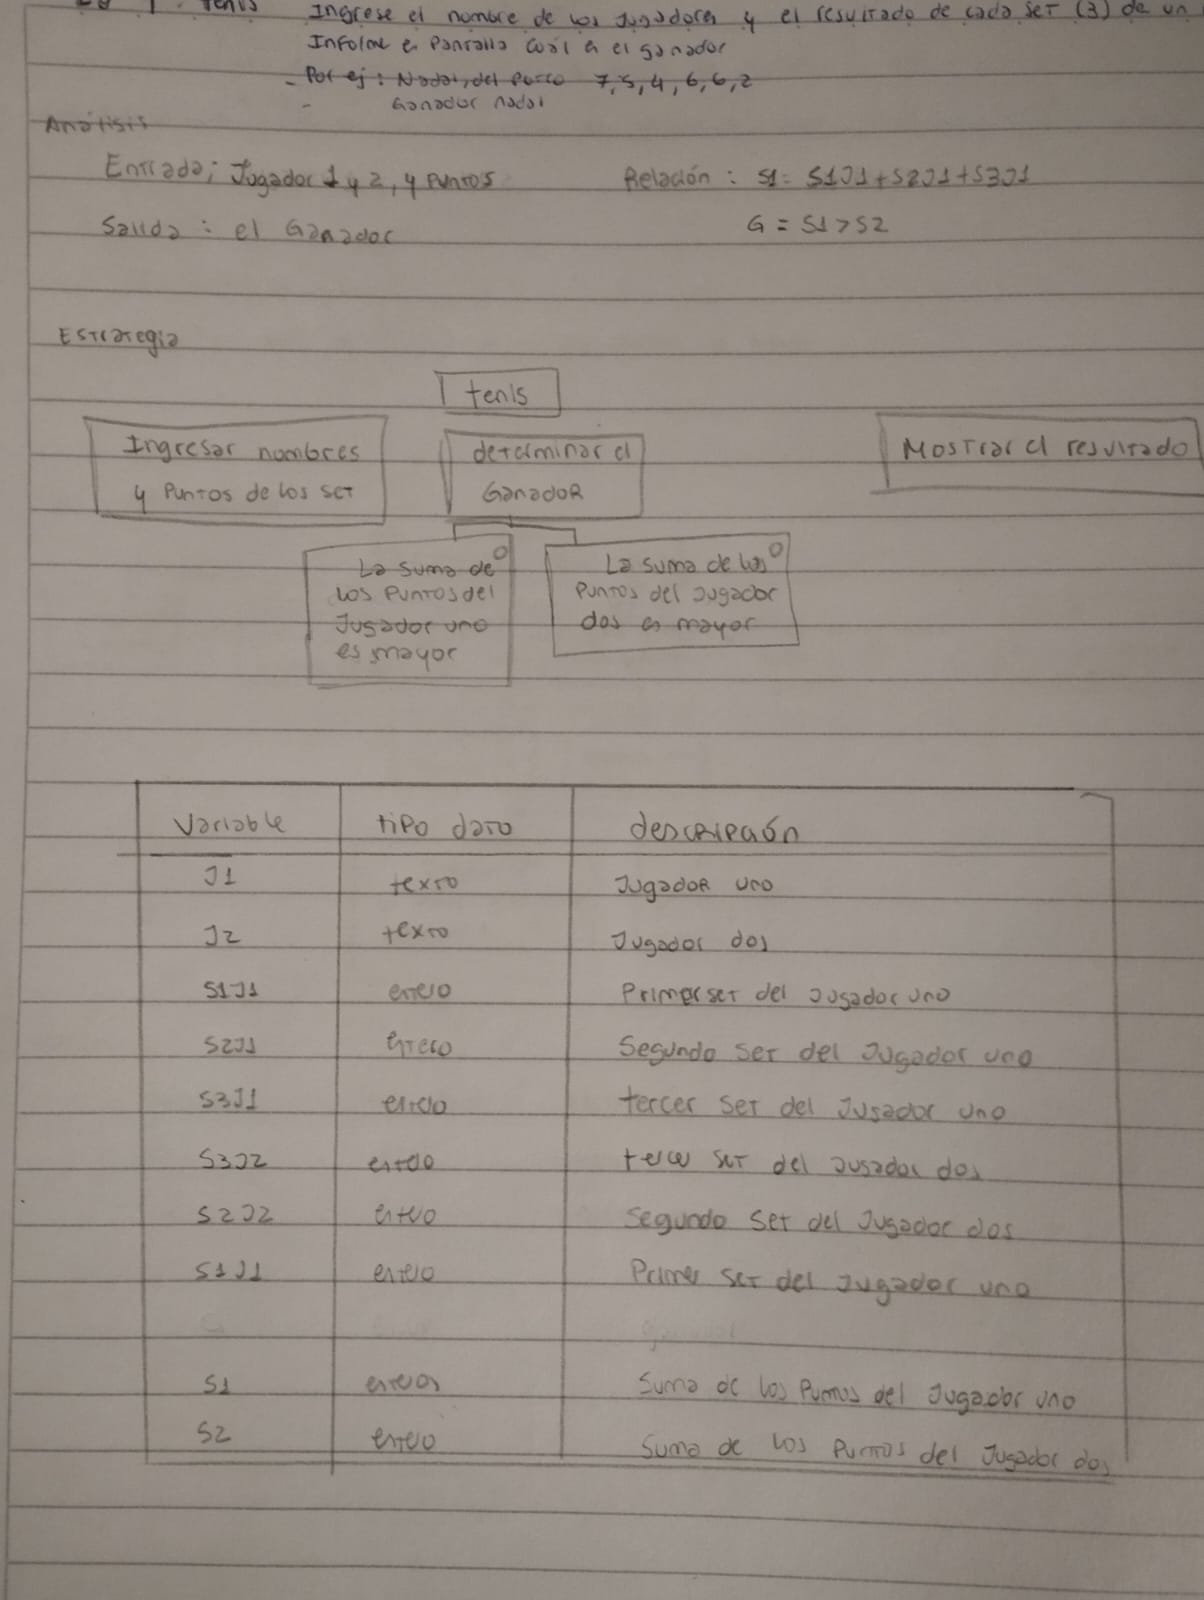 1. Tenis Ingrese el nombre de los Jugadores y el resultado de cada set (3) de un
Informe en Pantalla cual es el ganador
- Por ej: Nadal, del Potro 7,5,4,6,6,2
- Ganador nadal
Análisis
Entrada; Jugador 1 y 2, y Puntos
Relación: S1= S1J1+S2J1+S3J1
Salida: el Ganador
G = S1>S2
Estrategia
tenis
Ingresar nombres
y Puntos de los set
determinar el
GanadoR
Mostrar el resultado
La suma de
los Puntos del
Jugador uno
es mayor
La suma de los
Puntos del Jugador
dos es mayor
Variable tipo dato descripción
J1 texto JugadoR uno
J2 texto Jugador dos
S1J1 entero Primer set del Jugador uno
S2J1 Entero Segundo set del Jugador uno
S3J1 entero tercer set del Jugador uno
S3J2 entero tercer set del Jugador dos
S2J2 entero segundo set del Jugador dos
S1J1 entero Primer set del Jugador uno
S1 enteros Suma de los Puntos del Jugador uno
S2 entero Suma de los Puntos del Jugador dos